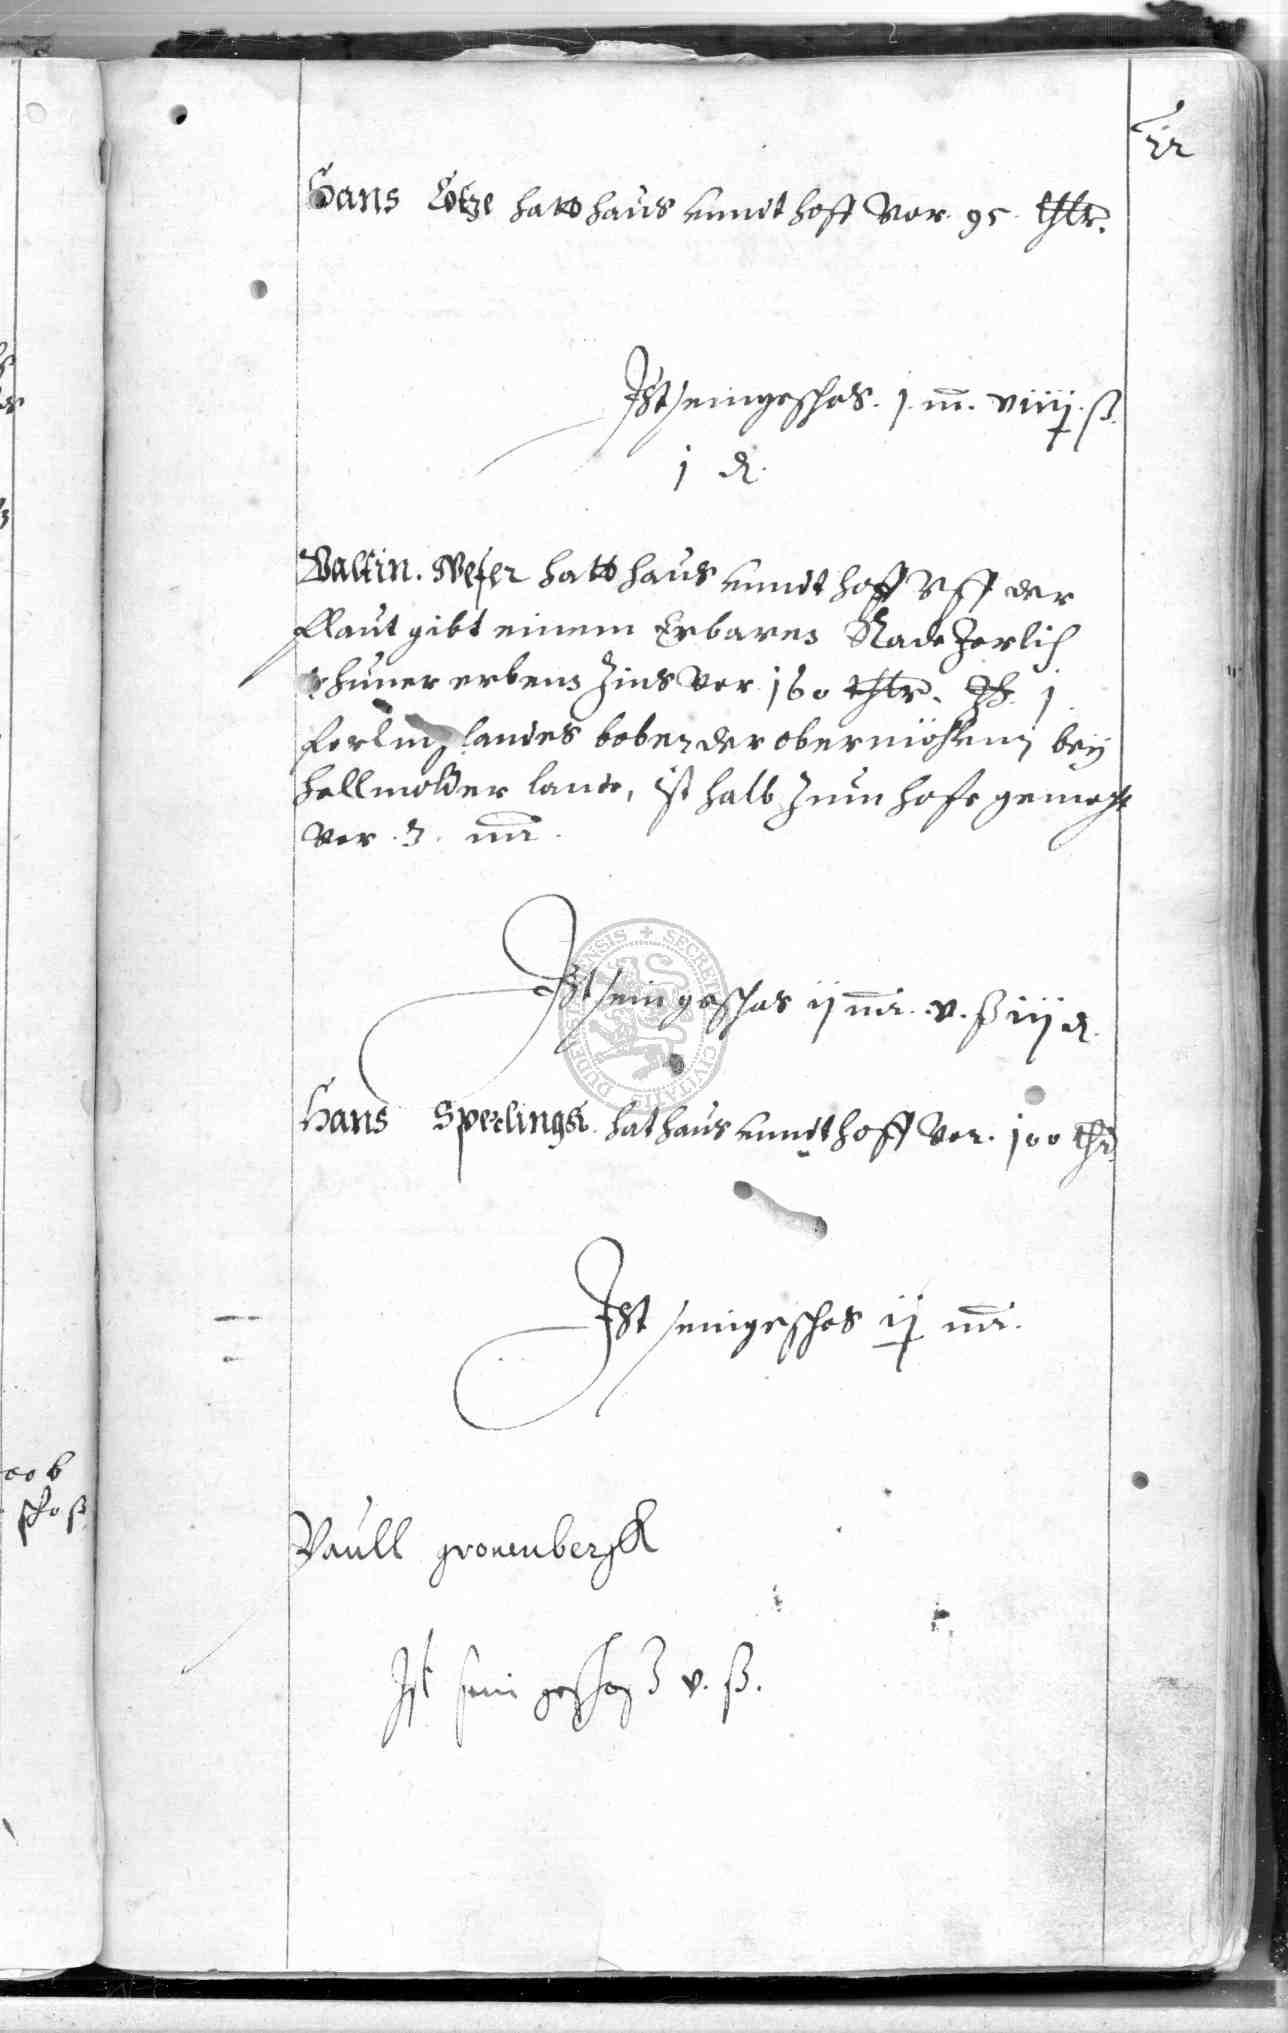 Hans Lotze hatt haus unndt hoff vor 95 thlr.
Ist sein geschos j m. viiij ß.
j d.
Valtin hatt haus unndt hoff uff der
flaut gibt einem Erbaren Rade Jerlich
huner erbenzins vor 160 thlr. It. j
forling landes boben der obermöhlenn bey
hellmolder lande, ist halb zum hofe gemacht
vor 3 m
Ist sein geschos ij m v ß iij d
Hans Sperlingk hat haus unndt hoff vor 100 thlr
Ist sein geschos ij m
Paull gronenbergk
Ist sein geschoß v. ß.
DUDER ENSIS + SECRET CIVITATIS